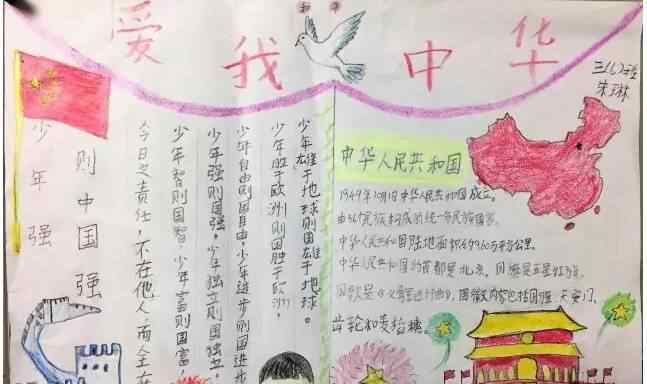 和平
爱我中华
三(6)班
朱琳
少年强
则中国强
今日之责任,不在他人,而全在
少年智则国智,少年富则国富,
少年强则国强,少年独立则国独立,
少年自由则国自由,少年进步则国进步
少年胜于欧洲则国胜于欧洲,
少年雄于地球则国雄于地球。
中华人民共和国
1949年10月1日中华人民共和国成立。
由56个民族构成的统一多民族国家。
中华人民共和国陆地面积约960万平方公里。
中华人民共和国的首都是北京。国旗是五星红旗。
国歌是《义勇军进行曲》,国徽内容包括国旗、天安门、
齿轮和麦稻穗。